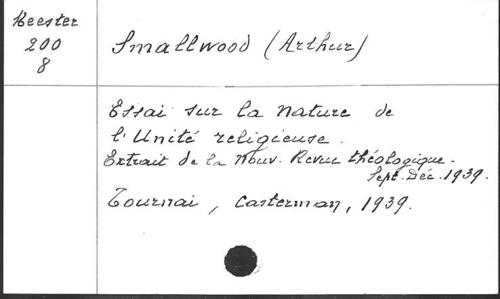 Heester
200
8
Smallwood (Arthur)
Essai sur la nature de
l'Unité religieuse.
Extrait de la Nouv. Revue théologique.
Sept. Déc. 1939.
Tournai, Casterman, 1939.